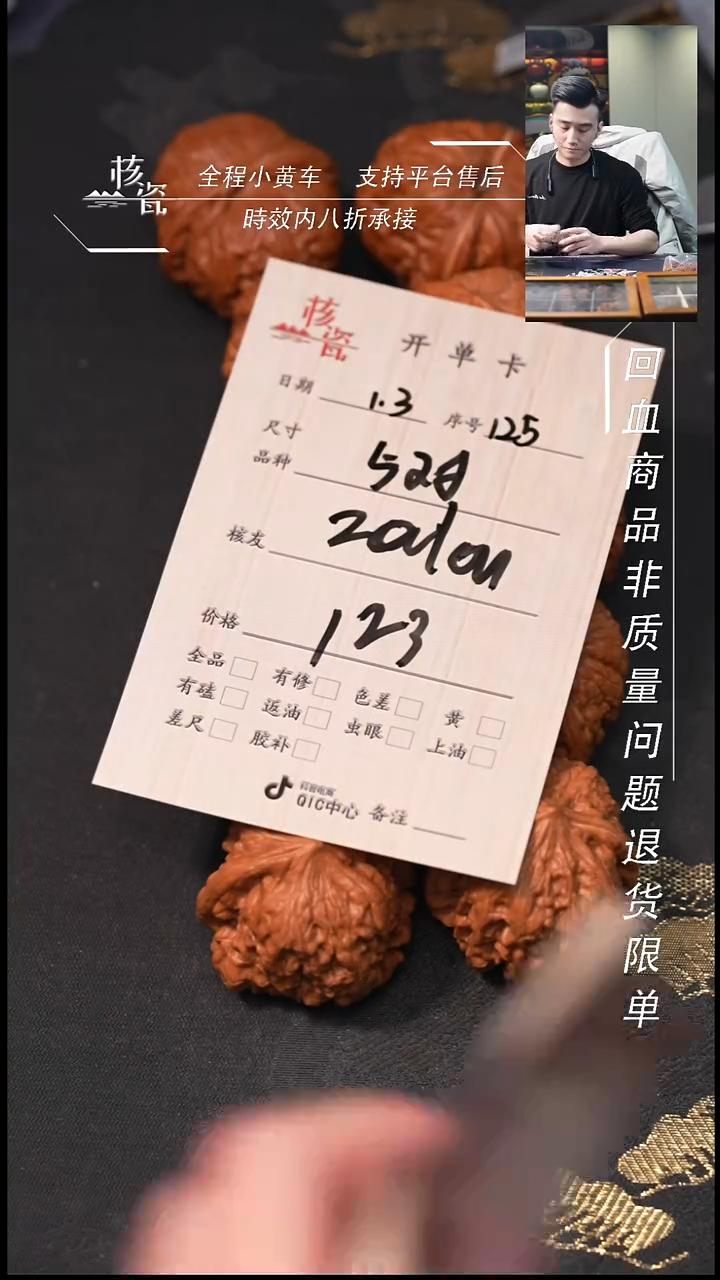 核瓷
全程小黄车 支持平台售后
時效内八折承接
核瓷
开单卡
日期 1.3 序号 125
尺寸
品种
核友
价格 123
全品 有修 色差 黄
有磕 返油 虫眼 上油
差尺 胶补
抖音电商
QIC中心 备注
回血商品非质量问题退货限单